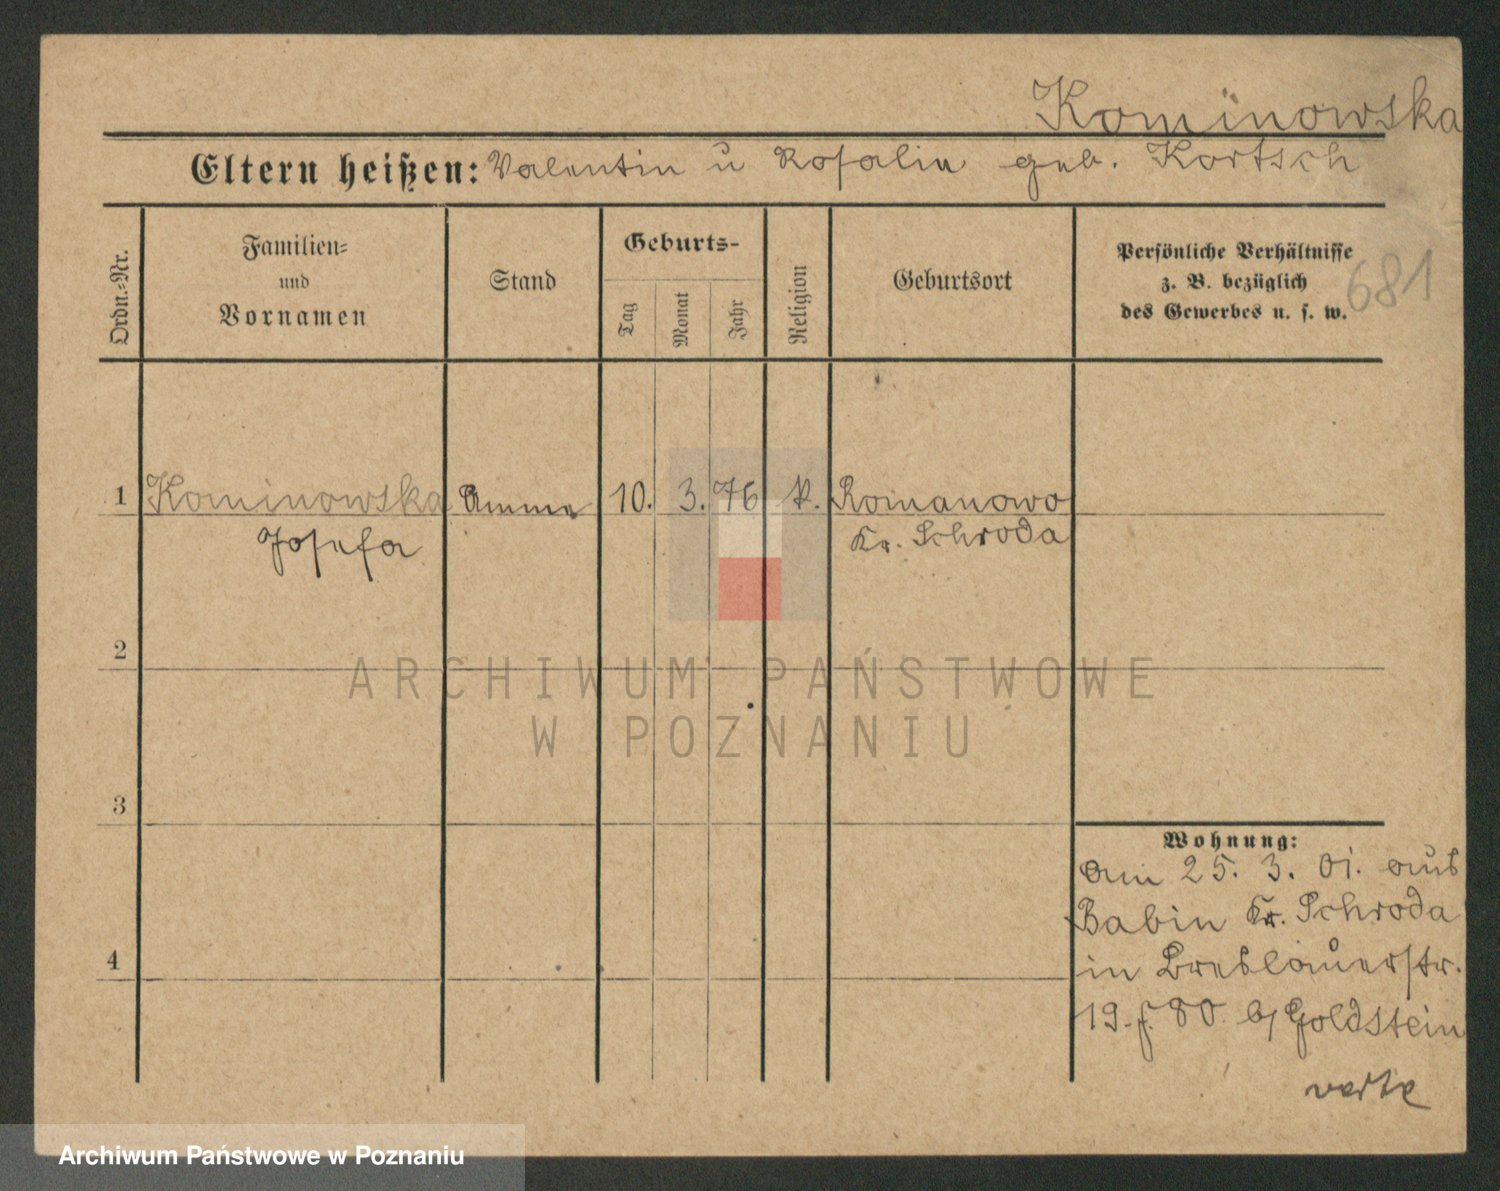 Kominowska
Eltern heißen: Valentin u Rosalie geb. Kortsch
Ordn.-Nr.
Familien-
und
Vornamen
Stand
Geburts-
Tag
Monat
Jahr
Religion
Geburtsort
Persönliche Verhältnisse
z. B. bezüglich
des Gewerbes u. s. w.
681
1 Kominowska Amme 10. 3. 76 k. Romanowo
Josefa Kr. Schroda
2
ARCHIWUM PAŃSTWOWE
W POZNANIU
3
Wohnung:
am 25. 3. 01. aus
Babin Kr. Schroda
4
in Breslauerstr.
19. f. 80. b/ Goldstein
verte
Archiwum Państwowe w Poznaniu